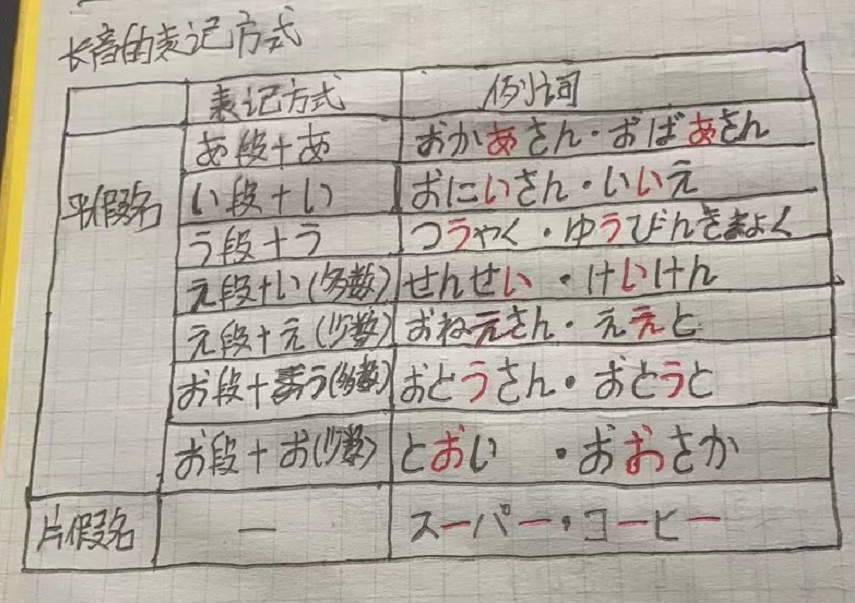 长音的表记方式
表记方式 例词
平假名
あ段+あ おかあさん・おばあさん
い段+い おにいさん・いいえ
う段+う つうやく・ゆうびんきょく
え段+い(多数) せんせい・けいけん
え段+え(少数) おねえさん・ええと
お段+う(多数) おとうさん・おとうと
お段+お(少数) とおい・おおさか
片假名 ー スーパー・コーヒー